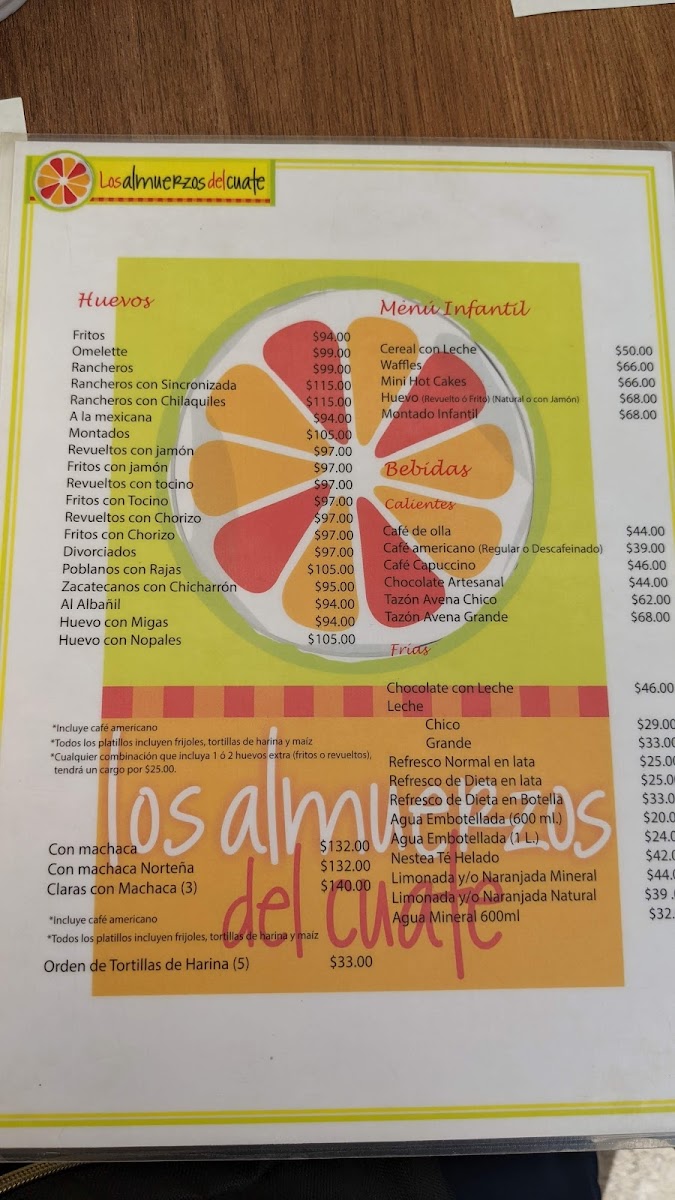 Los almuerzos del cuate
Huevos
Fritos $94.00
Omelette $99.00
Rancheros $99.00
Rancheros con Sincronizada $115.00
Rancheros con Chilaquiles $115.00
A la mexicana $94.00
Montados $105.00
Revueltos con jamón $97.00
Fritos con jamón $97.00
Revueltos con tocino $97.00
Fritos con Tocino $97.00
Revueltos con Chorizo $97.00
Fritos con Chorizo $97.00
Divorciados $97.00
Poblanos con Rajas $105.00
Zacatecanos con Chicharrón $95.00
Al Albañil $94.00
Huevo con Migas $94.00
Huevo con Nopales $105.00
*Incluye café americano
*Todos los platillos incluyen frijoles, tortillas de harina y maíz
*Cualquier combinación que incluya 1 ó 2 huevos extra (fritos o revueltos),
tendrá un cargo por $25.00.
Con machaca $132.00
Con machaca Norteña $132.00
Claras con Machaca (3) $140.00
*Incluye café americano
*Todos los platillos incluyen frijoles, tortillas de harina y maíz
Orden de Tortillas de Harina (5) $33.00
Menú Infantil
Cereal con Leche $50.00
Waffles $66.00
Mini Hot Cakes $66.00
Huevo (Revuelto ó Frito) (Natural o con Jamón) $68.00
Montado Infantil $68.00
Bebidas
Calientes
Café de olla $44.00
Café americano (Regular o Descafeinado) $39.00
Café Capuccino $46.00
Chocolate Artesanal $44.00
Tazón Avena Chico $62.00
Tazón Avena Grande $68.00
Frías
Chocolate con Leche $46.00
Leche
Chico $29.00
Grande $33.00
Refresco Normal en lata $25.0
Refresco de Dieta en lata $25.0
Refresco de Dieta en Botella $33.0
Agua Embotellada (600 ml.) $20.0
Agua Embotellada (1 L.) $24.0
Nestea Té Helado $42.
Limonada y/o Naranjada Mineral $44.
Limonada y/o Naranjada Natural $39 .
Agua Mineral 600ml $32.
los almuerzos
del cuate